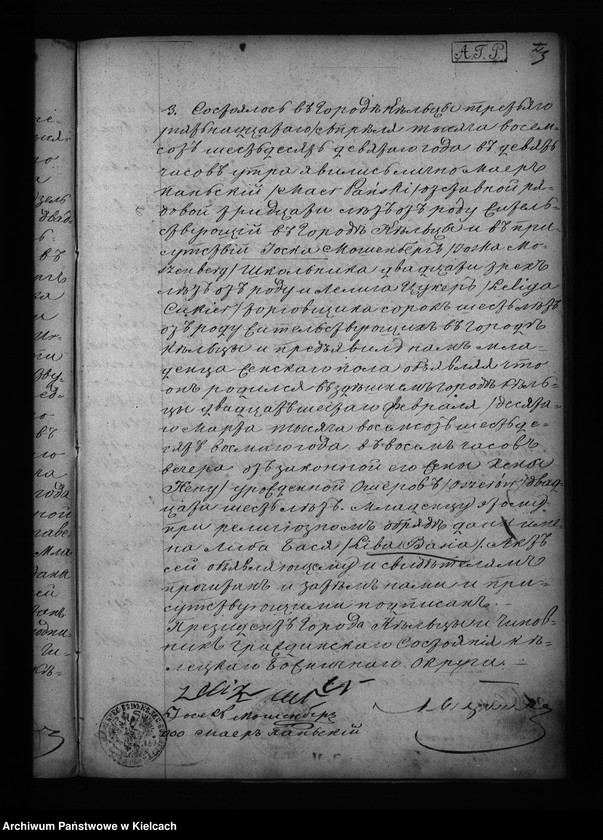 А.Г.Р.
3. Состоялось въ Городѣ Кѣльцы третьяго
пятьнадцатаго Апрѣля тысяча восем-
сотъ шестьдесятъ девятаго года въ девять
часовъ утра явились лично Маеръ
Паньскiй /Maer Pański/ отставной ря-
довой тридцати лѣтъ отъ роду житель-
ствующiй въ Городѣ Кѣльцы и въ при-
сутствiи Іоска Мошенберга /Joska Mo-
szenberg/ Школьника двадцати трехъ
лѣтъ отъ роду и Лелига Цукеръ /Leliga
Cukier/ торговщика сорокъ шесть лѣтъ
отъ роду жительствующихъ въ Городѣ
Кѣльцы и предъявилъ намъ мла-
денца женскаго пола объявляя что
онъ родился въ здѣшнемъ городѣ Кѣль-
цы двадцать шестаго Февраля /десята-
го Марта тысяча восемсотъ шестьде-
сятъ восмаго года въ восемъ часовъ
вечера отъ законной его жены
урожденной двад-
цати шесть лѣтъ. Младенцу этому
при религiозномъ обрядѣ дано име-
на Либа Бася /Liba Basia/. Актъ
сей объявляющему и свидѣтелямъ
прочитанъ и затѣмъ нами и при-
сутствующими подписанъ. –
Президентъ Города Кѣльцы и Чинов-
никъ Гражданскаго Состоянiя Кѣ-
лецкаго Божничнаго Округа. –
Іосекъ Мошенберг
Маеръ Паньскiй
Archiwum Państwowe w Kielcach